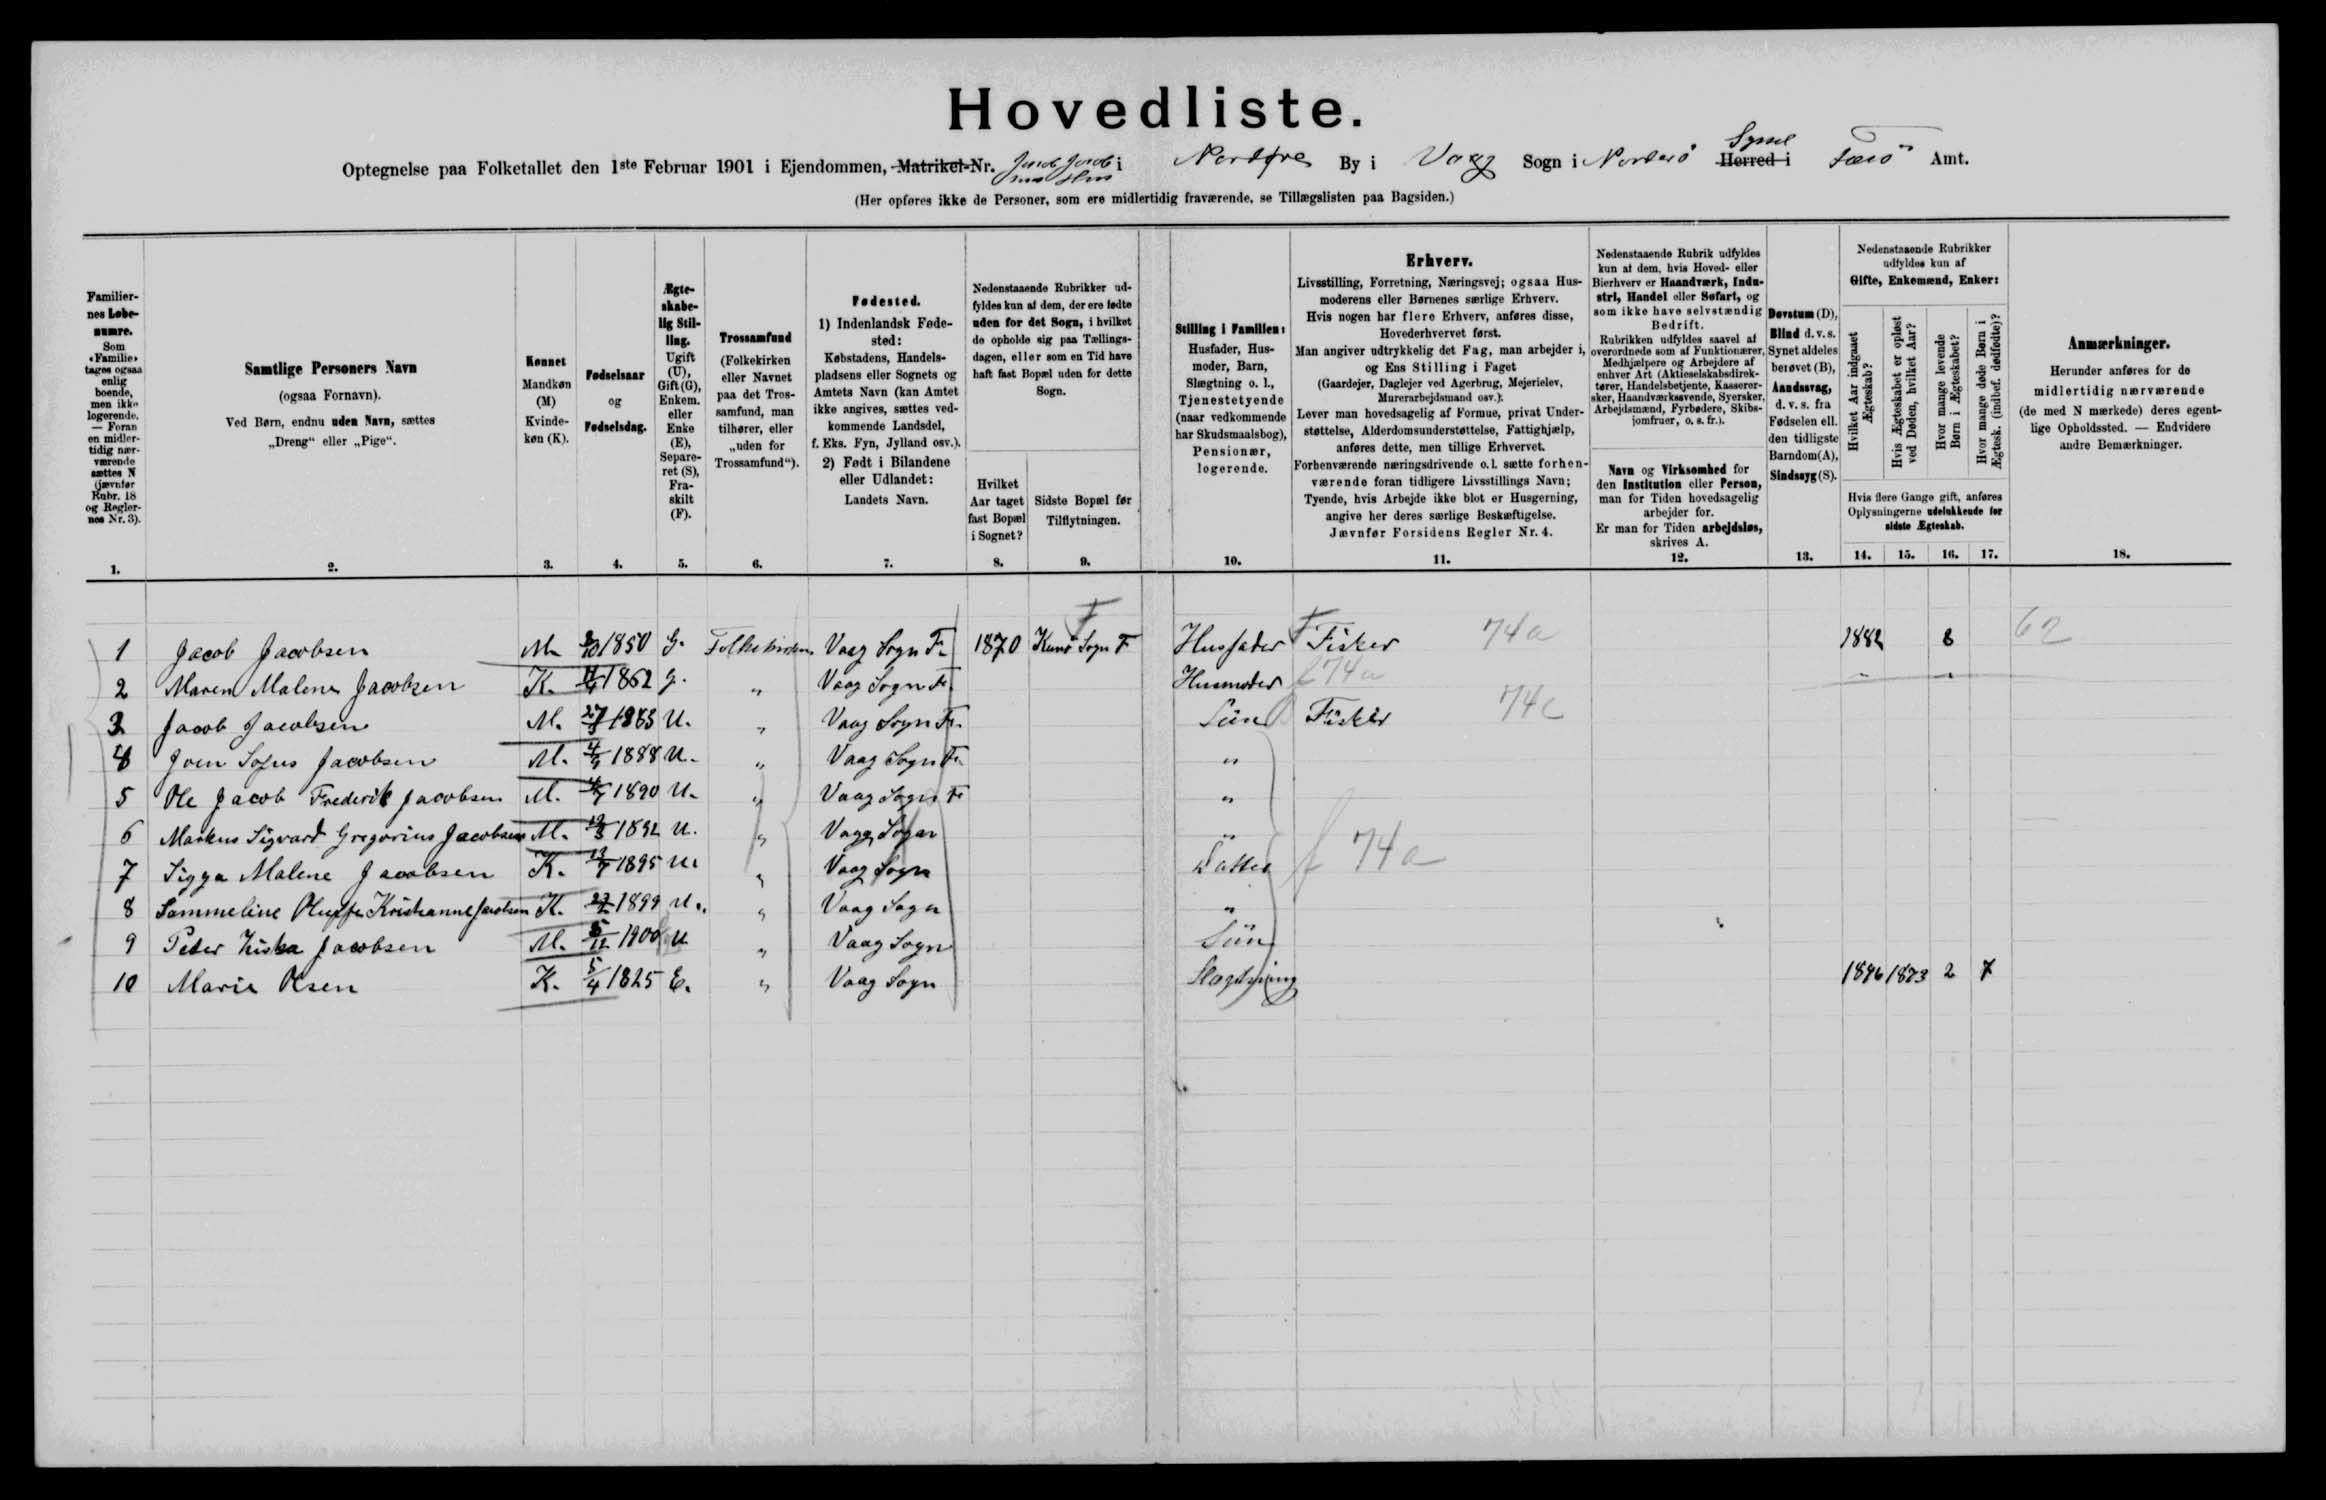 Hovedliste.
Optegnelse paa Folketallet den 1ste Februar 1901 i Ejendommen, Matrikel-Nr. Jacob Jacobsens Hus i Nordøre By i Vaag Sogn i Norderö Herred i Syssel Færö Amt.
(Her opføres ikke de Personer, som ere midlertidig fraværende, se Tillægslisten paa Bagsiden.)
Familiernes Løbenumre.
Som «Familie» tages ogsaa enlig boende, men ikke logerende. — Foran en midlertidig nærværende sættes N (jævnfør Rubr. 18 og Reglernes Nr. 3).
1.
Samtlige Personers Navn
(ogsaa Fornavn).
Ved Børn, endnu uden Navn, sættes „Dreng“ eller „Pige“.
2.
Kønnet
Mandkøn (M)
Kvindekøn (K).
3.
Fødselsaar og Fødselsdag.
4.
Ægteskabelig Stilling.
Ugift (U), Gift (G), Enkem. eller Enke (E), Separeret (S), Fraskilt (F).
5.
Trossamfund
(Folkekirken eller Navnet paa det Trossamfund, man tilhører, eller „uden for Trossamfund“).
6.
Fødested.
1) Indenlandsk Fødested:
Købstadens, Handelspladsens eller Sognets og Amtets Navn (kan Amtet ikke angives, sættes vedkommende Landsdel, f. Eks. Fyn, Jylland osv.).
2) Født i Bilandene eller Udlandet:
Landets Navn.
7.
Nedenstaaende Rubrikker udfyldes kun af dem, der ere fødte uden for det Sogn, i hvilket de opholde sig paa Tællingsdagen, eller som en Tid have haft fast Bopæl uden for dette Sogn.
Hvilket Aar taget fast Bopæl i Sognet?
8.
Sidste Bopæl før Tilflytningen.
9.
Stilling i Familien:
Husfader, Husmoder, Barn, Slægtning o. l., Tjenestetyende (naar vedkommende har Skudsmaalsbog), Pensionær, logerende.
10.
Erhverv.
Livsstilling, Forretning, Næringsvej; ogsaa Husmoderens eller Børnenes særlige Erhverv.
Hvis nogen har flere Erhverv, anføres disse, Hovederhvervet først.
Man angiver udtrykkelig det Fag, man arbejder i, og Ens Stilling i Faget
(Gaardejer, Daglejer ved Agerbrug, Mejerielev, Murerarbejdsmand osv.).
Lever man hovedsagelig af Formue, privat Understøttelse, Alderdomsunderstøttelse, Fattighjælp, anføres dette, men tillige Erhvervet.
Forhenværende næringsdrivende o. l. sætte forhenværende foran tidligere Livsstillings Navn;
Tyende, hvis Arbejde ikke blot er Husgerning, angive her deres særlige Beskæftigelse.
Jævnfør Forsidens Regler Nr. 4.
11.
Nedenstaaende Rubrik udfyldes kun af dem, hvis Hoved- eller Bierhverv er Haandværk, Industri, Handel eller Søfart, og som ikke have selvstændig Bedrift.
Rubrikken udfyldes saavel af overordnede som af Funktionærer, Medhjælpere og Arbejdere af enhver Art (Aktieselskabsdirektører, Handelsbetjente, Kasserersker, Haandværkssvende, Syersker, Arbejdsmænd, Fyrbødere, Skibsjomfruer, o. s. fr.).
Navn og Virksomhed for den Institution eller Person, man for Tiden hovedsagelig arbejder for.
Er man for Tiden arbejdsløs, skrives A.
12.
Døvstum (D), Blind d. v. s. Synet aldeles berøvet (B), Aandssvag, d. v. s. fra Fødselen ell. den tidligste Barndom (A), Sindssyg (S).
13.
Nedenstaaende Rubrikker udfyldes kun af Gifte, Enkemænd, Enker:
Hvilket Aar indgaaet Ægteskab?
Hvis Ægteskabet er opløst ved Døden, hvilket Aar?
Hvor mange levende Børn i Ægteskabet?
Hvor mange døde Børn i Ægtesk. (indbef. dødfødte)?
Hvis flere Gange gift, anføres Oplysningerne udelukkende for sidste Ægteskab.
14. 15. 16. 17.
Anmærkninger.
Herunder anføres for de midlertidig nærværende (de med N mærkede) deres egentlige Opholdssted. — Endvidere andre Bemærkninger.
18.
1 Jacob Jacobsen M. 1850 G. Folkekirken Vaag Sogn F. 1870 Kunö Sogn F Husfader Fisker 74a 1882 8 62
2 Maren Malene Jacobsen K. 1862 G. „ Vaag Sogn F. Husmoder 74a „ „
3 Jacob Jacobsen M. 1883 U. „ Vaag Sogn F. Sün Fisker 74c
4 Joen Sofus Jacobsen M. 1888 U. „ Vaag Sogn F. „
5 Ole Jacob Frederik Jacobsen M. 1890 U. „ Vaag Sogn F „
6 Markus Sigvard Gregorius Jacobsen M. 1892 U. „ Vaag Sogn „
7 Sigga Malene Jacobsen K. 1895 U. „ Vaag Sogn Datter f 74a
8 Sammeline Kristianne Jacobsen K. 1899 U. „ Vaag Sogn „
9 Peter Ziska Jacobsen M. 5/12 1900 U „ Vaag Sogn Sün
10 Marie Olsen K. 5/4 1825 E. „ Vaag Sogn Slægtning 1846 1873 2 7